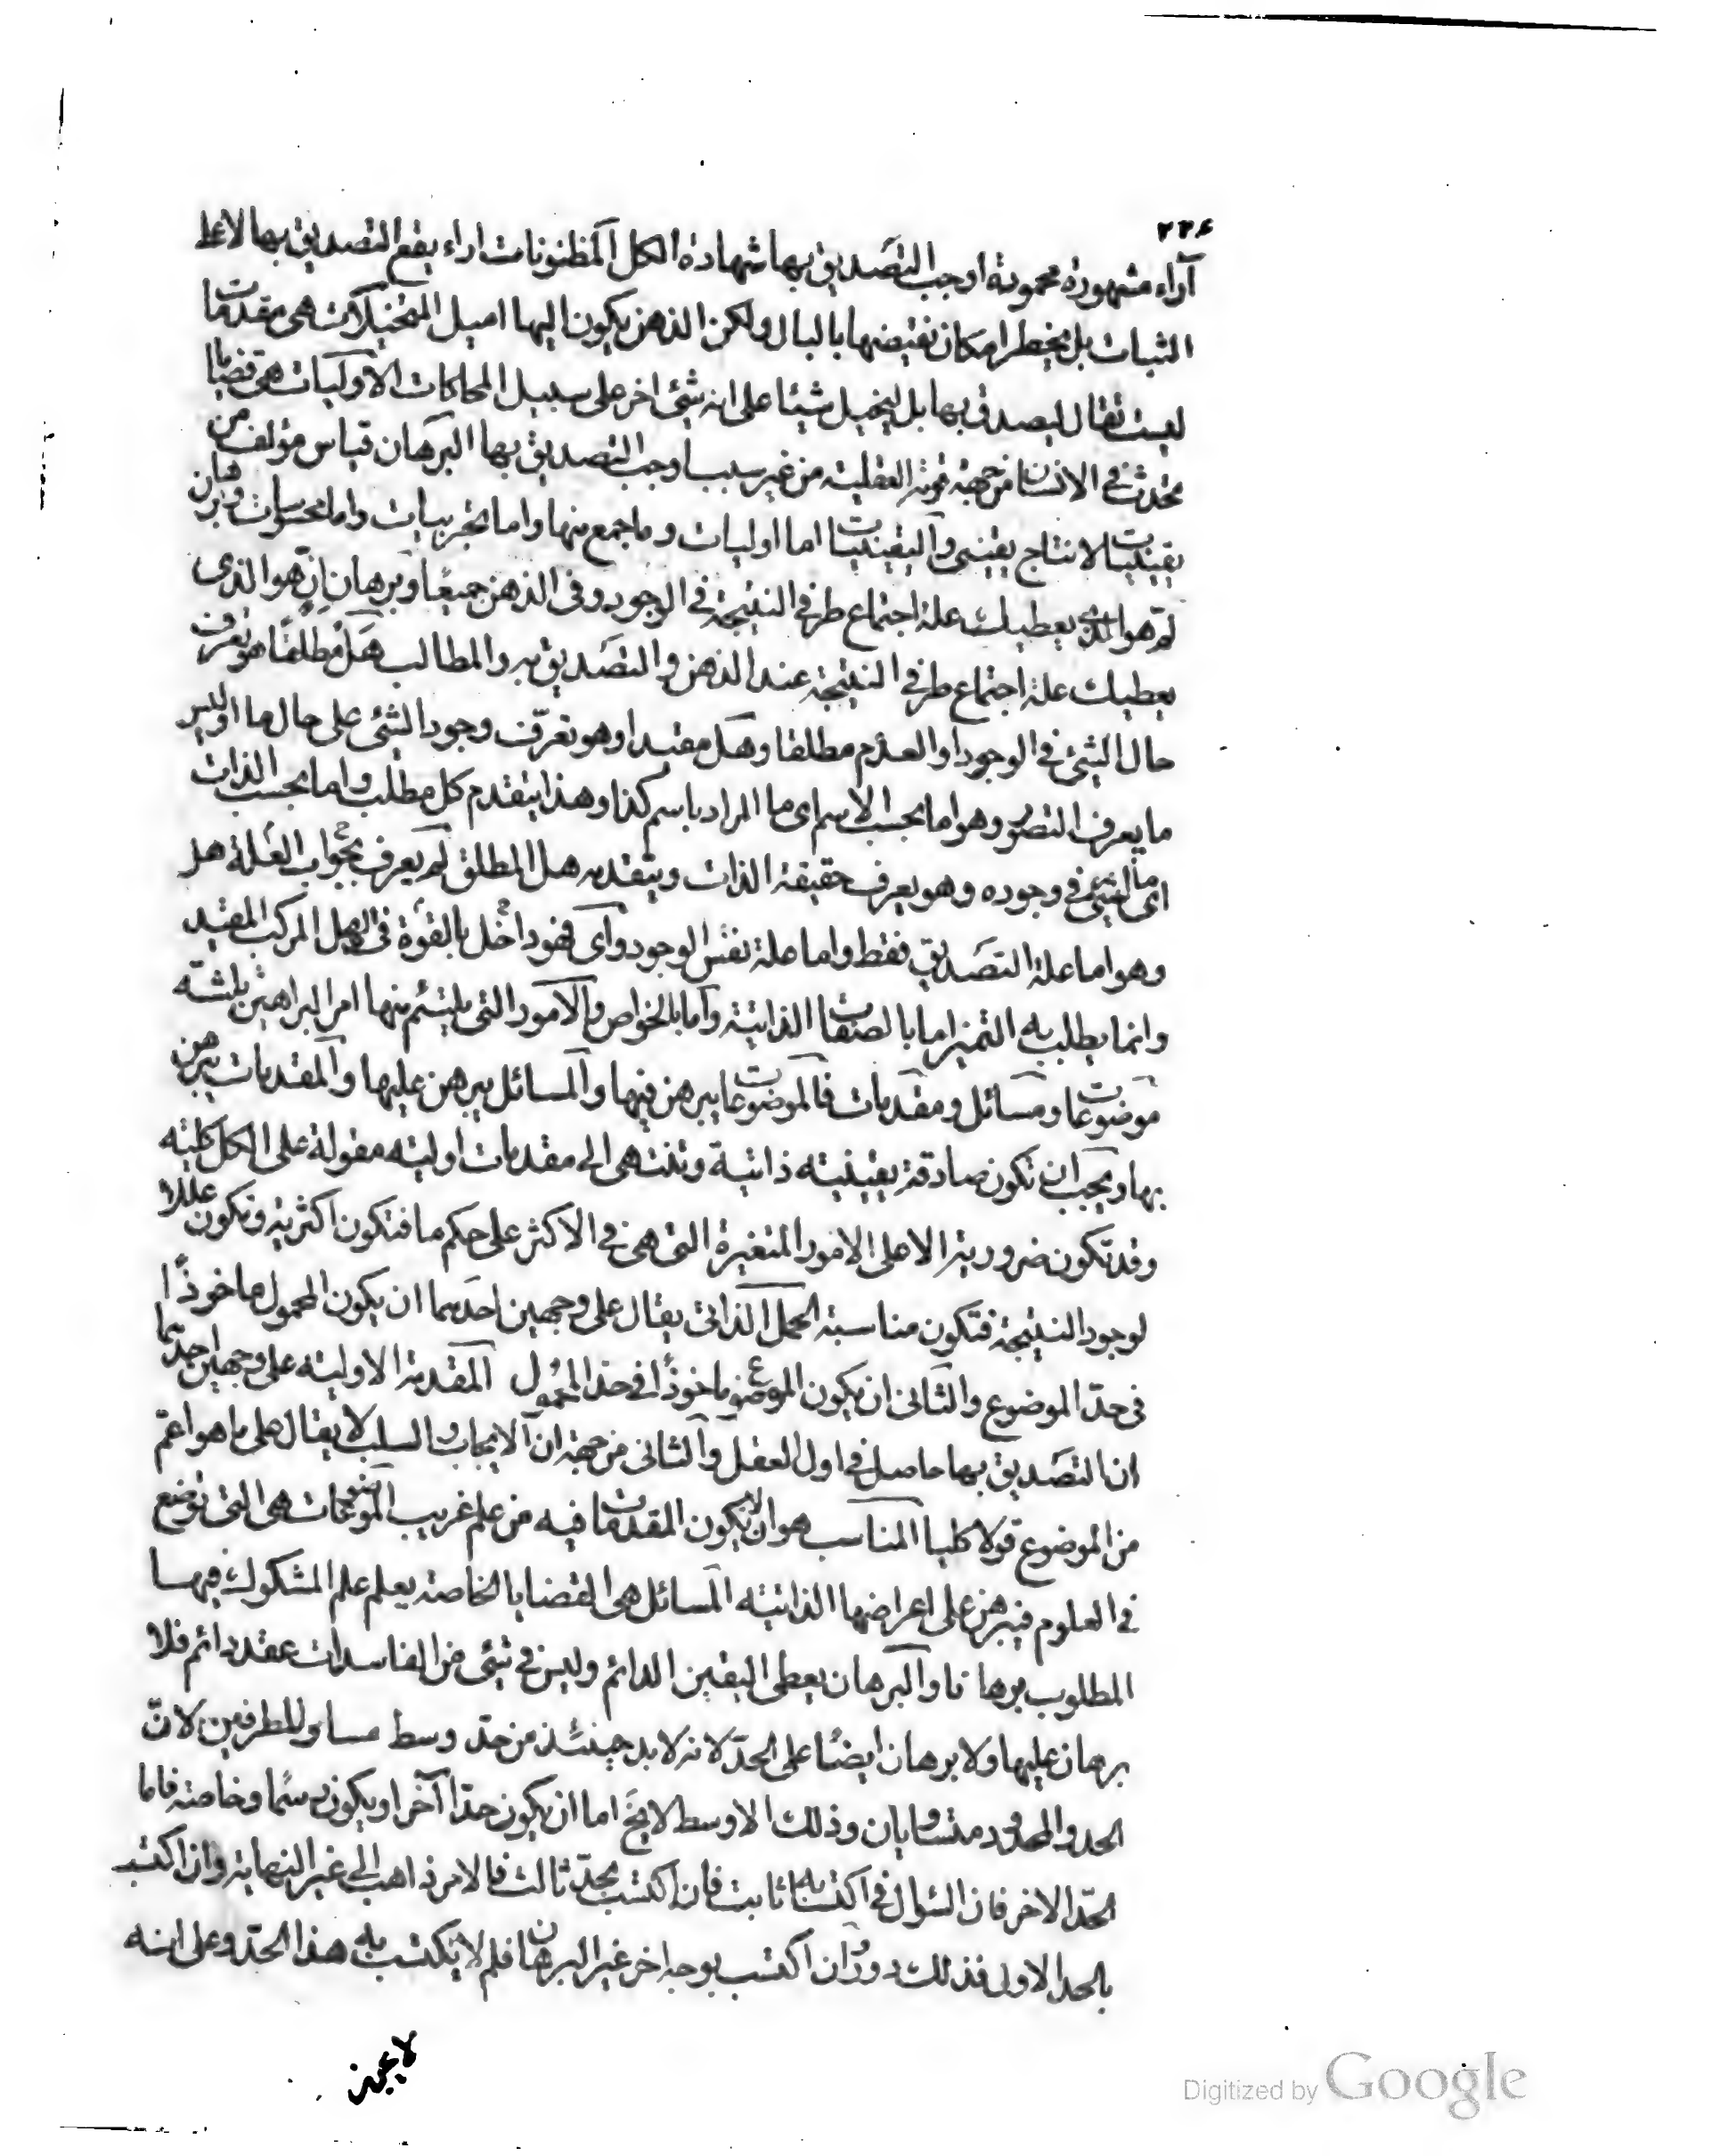 ٢٢٤
آراء مشهورة محمودة اوجب التصديق بها شهادة الكل المظنونات اراء يقع التصديق بها لا على
الثبات بل يخطر امكان نقيضها بالبال ولكن الذهن يكون اليها اميل المتخيلات هى مقدمات
ليست تقال ليصدق بها بل ليخيل شيئا على انه شئ اخر على سبيل المحاكات الاوليات هى قضايا
تحدث فى الانسان من جهة قوته العقلية من غير سبب اوجب التصديق بها البرهان قياس مؤلف من
يقينيات لانتاج يقينى واليقينيات اما اوليات وما جمع منها واما تجريبيات واما محسوسات وبرهان
لم هو الذى يعطيك علة اجتماع طرفى النتيجة فى الوجود وفى الذهن جميعا وبرهان انّ هو الذى
يعطيك علة اجتماع طرفى النتيجة عند الذهن والتصديق به والمطالب هل مطلقا هو تعرف
حال الشئ فى الوجود او العدم مطلقا وهل مقيدا وهو تعرّف وجود الشئ على حال ما او ليس
ما يعرف التصور وهو اما بحسب الاسم اى ما المراد باسم كذا وهذا يتقدم كل مطلب واما بحسب الذات
اى ما الشئ فى وجوده وهو يعرف حقيقة الذات ويتقدمه هل المطلق لم يعرف بجواب العلة هل
وهو اما علة التصديق فقط واما علة نفس الوجود واى فهو داخل بالقوة فى الهل المركب المقيد
وانما يطلب به التميز اما بالصفات الذاتية واما بالخواص والامور التى يلتئم منها امر البراهين ثلثه
موضوعات ومسائل ومقدمات فالموضوعات يبرهن فيها والمسائل يبرهن عليها والمقدمات يبرهن
بها ويجب ان تكون صادقة يقينيه ذاتية وتنتهى الى مقدمات اوليه مقولة على الكل كليه
وقد تكون ضرورية الا على الامور المتغيرة التى هى فى الاكثر على حكم ما فتكون اكثرية وتكون عللا
لوجود النتيجة فتكون مناسبة الحمل الذاتى يقال على وجهين احدهما ان يكون المحمول ماخوذًا
فى حدّ الموضوع والثانى ان يكون الموضوع ماخوذًا فى حد المحمول المقدمة الاوليه على وجهين احدهما
ان التصديق بها حاصل فى اول العقل والثانى من جهة ان الايجاب والسلب لا يقال على ما هو اعمّ
من الموضوع قولا كليا المناسب هو ان لا يكون المقدمات فيه من علم غريب الموضوعات هى التى توضع
فى العلوم فيبرهن على اعراضها الذاتيه المسائل هى القضايا الخاصة بعلم علم المشكوك فيها
المطلوب برهانا والبرهان يعطى اليقين الدائم وليس فى شئ من الفاسدات عقد دائم فلا
برهان عليها ولا برهان ايضًا على الحدّ لانه لا بد حينئذ من حدّ وسط مساو للطرفين لانّ
الحد والمحدود متساويان وذلك الاوسط لا يخ اما ان يكون حدّا آخر او يكون رسمًا وخاصة فاما
الحدّ الاخر فان السؤال فى اكتسابه ثابت فان اكتسب بحدّ ثالث فالامر ذاهب الى غير النهاية وان اكتسب
بالحد الاول فذلك دور وان اكتسب بوجه اخر غير البرهان فلم لا يكتسب به هذا الحدّ وعلى انه
لا يجوز
Digitized by Google